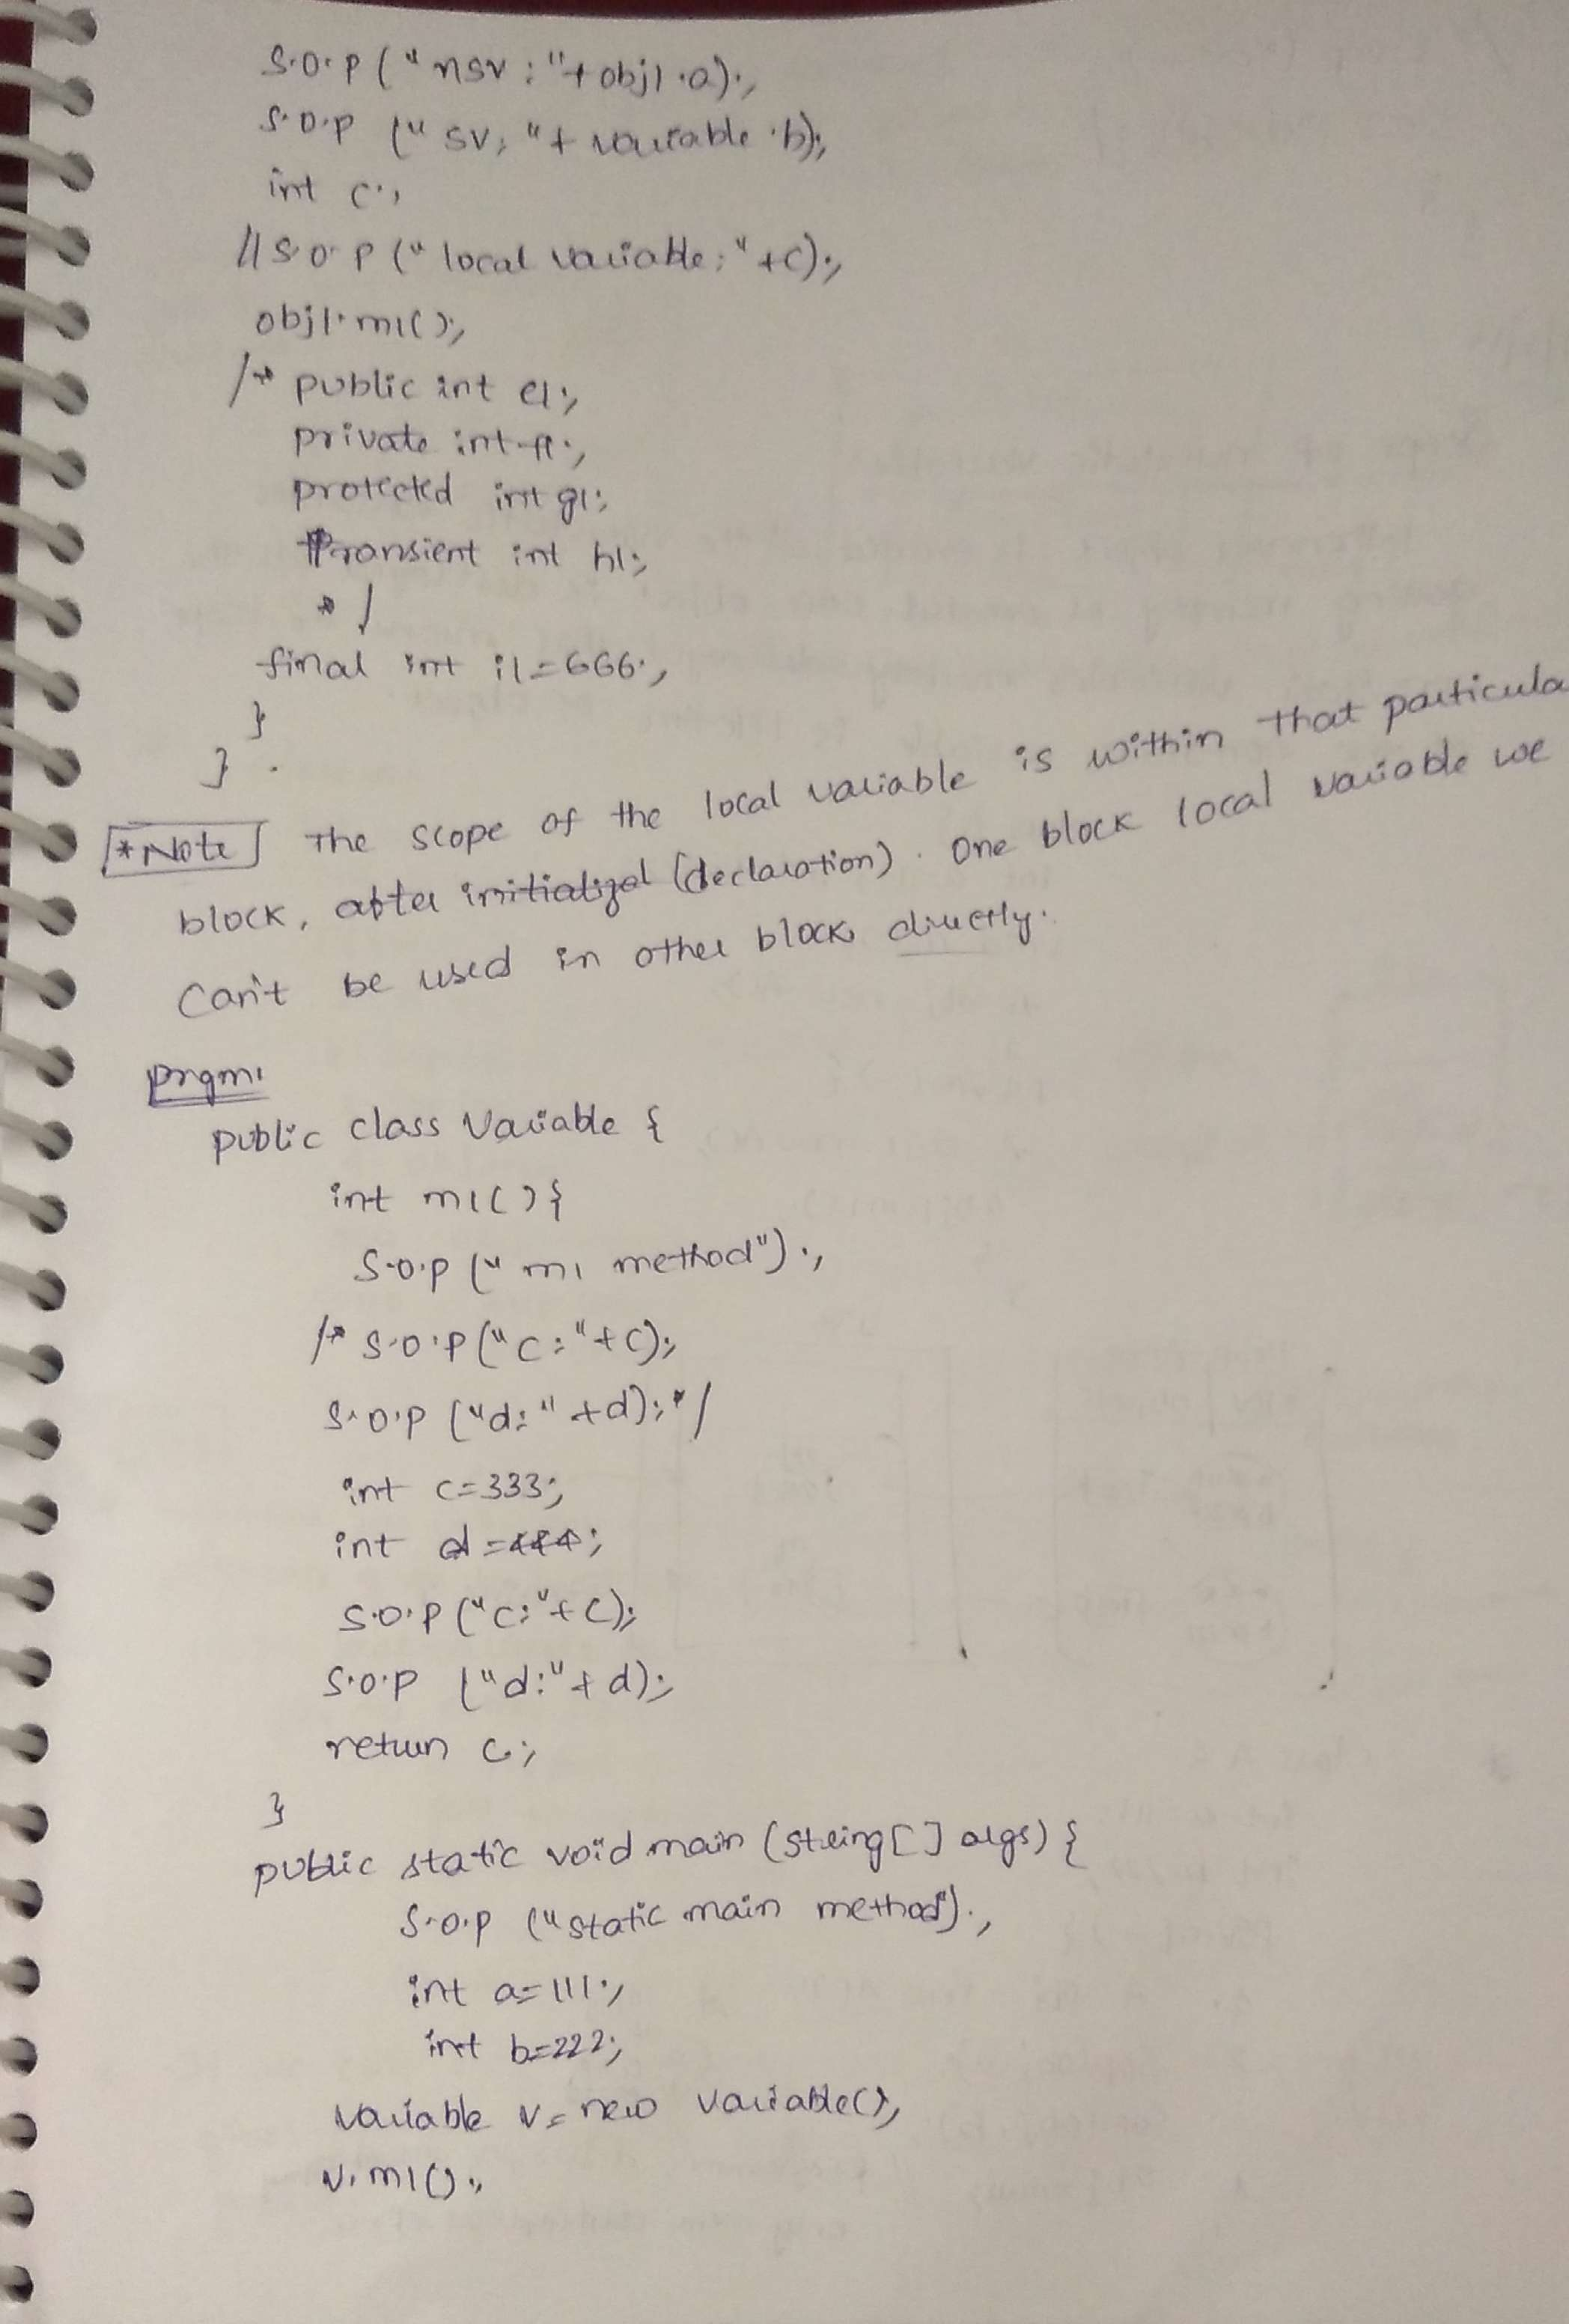 S.O.P ("nsv:"+obj1.a);
S.O.P ("sv; "+ variable.b);
int c;
//S.O.P ("local variable:"+c);
obj1.m1();
/* public int e1;
private int f1;
protected int g1;
Transient int h1;
*/
final int i1=666;
}
}
*Note The scope of the local variable is within that particula
block, after initialized (declaration). One block local variable we
Can't be used in other block directly.
prgm:
public class Variable {
int m1(){
S.O.P ("m1 method");
/* S.O.P("c:"+c);
S.O.P ("d:"+d);*/
int c=333;
int d=444;
S.O.P ("c:"+c);
S.O.P ("d:"+d);
return c;
}
public static void main (String[] args) {
S.O.P ("static main method");
int a=111;
int b=222;
Variable v= new variable();
v.m1();